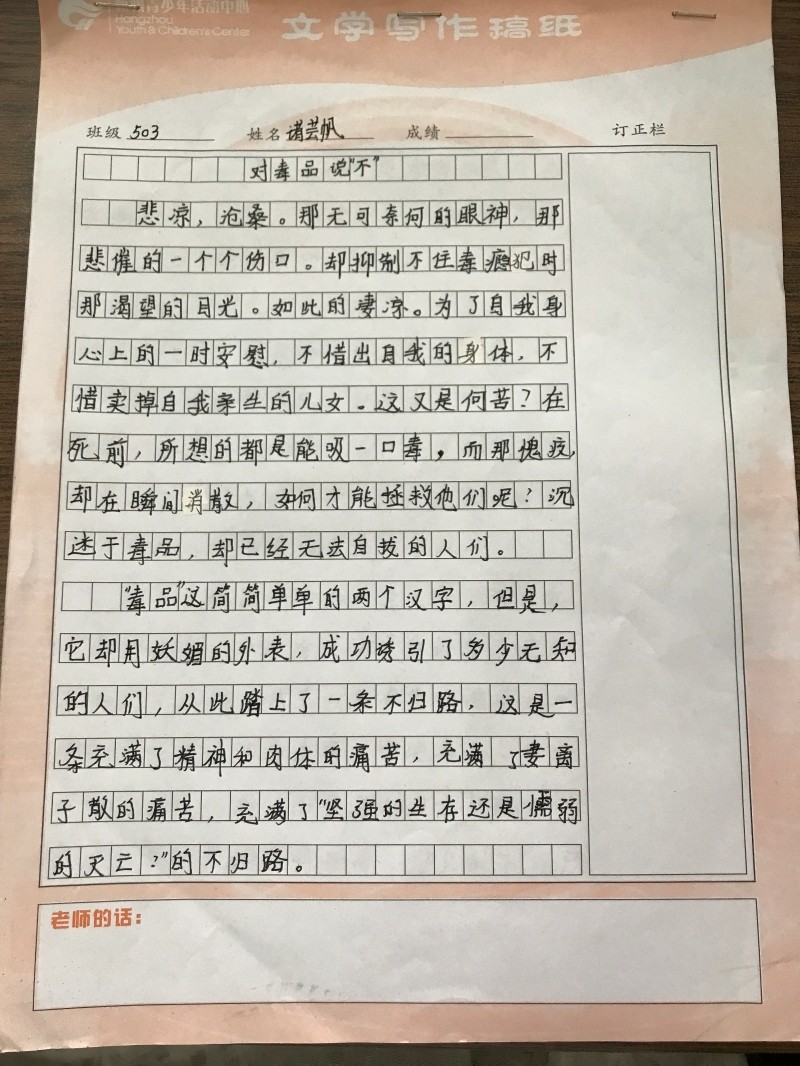 青少年活动中心
Hangzhou
Youth & Children's Center
文学写作稿纸
班级 503 姓名 诸芸帆 成绩 订正栏
对毒品说"不"
悲凉，沧桑。那无可奈何的眼神，那
悲催的一个个伤口。却抑制不住毒瘾犯时
那渴望的目光。如此的凄凉。为了自我身
心上的一时安慰，不惜出自我的身体，不
惜卖掉自我亲生的儿女。这又是何苦？在
死前，所想的都是能吸一口毒，而那愧疚
却在瞬间消散，如何才能拯救他们呢？沉
迷于毒品，却已经无法自拔的人们。
"毒品"这简简单单的两个汉字，但是，
它却用妖媚的外表，成功诱引了多少无知
的人们，从此踏上了一条不归路，这是一
条充满了精神和肉体的痛苦，充满了妻离
子散的痛苦，充满了"坚强的生存还是懦弱
的灭亡？"的不归路。
老师的话：